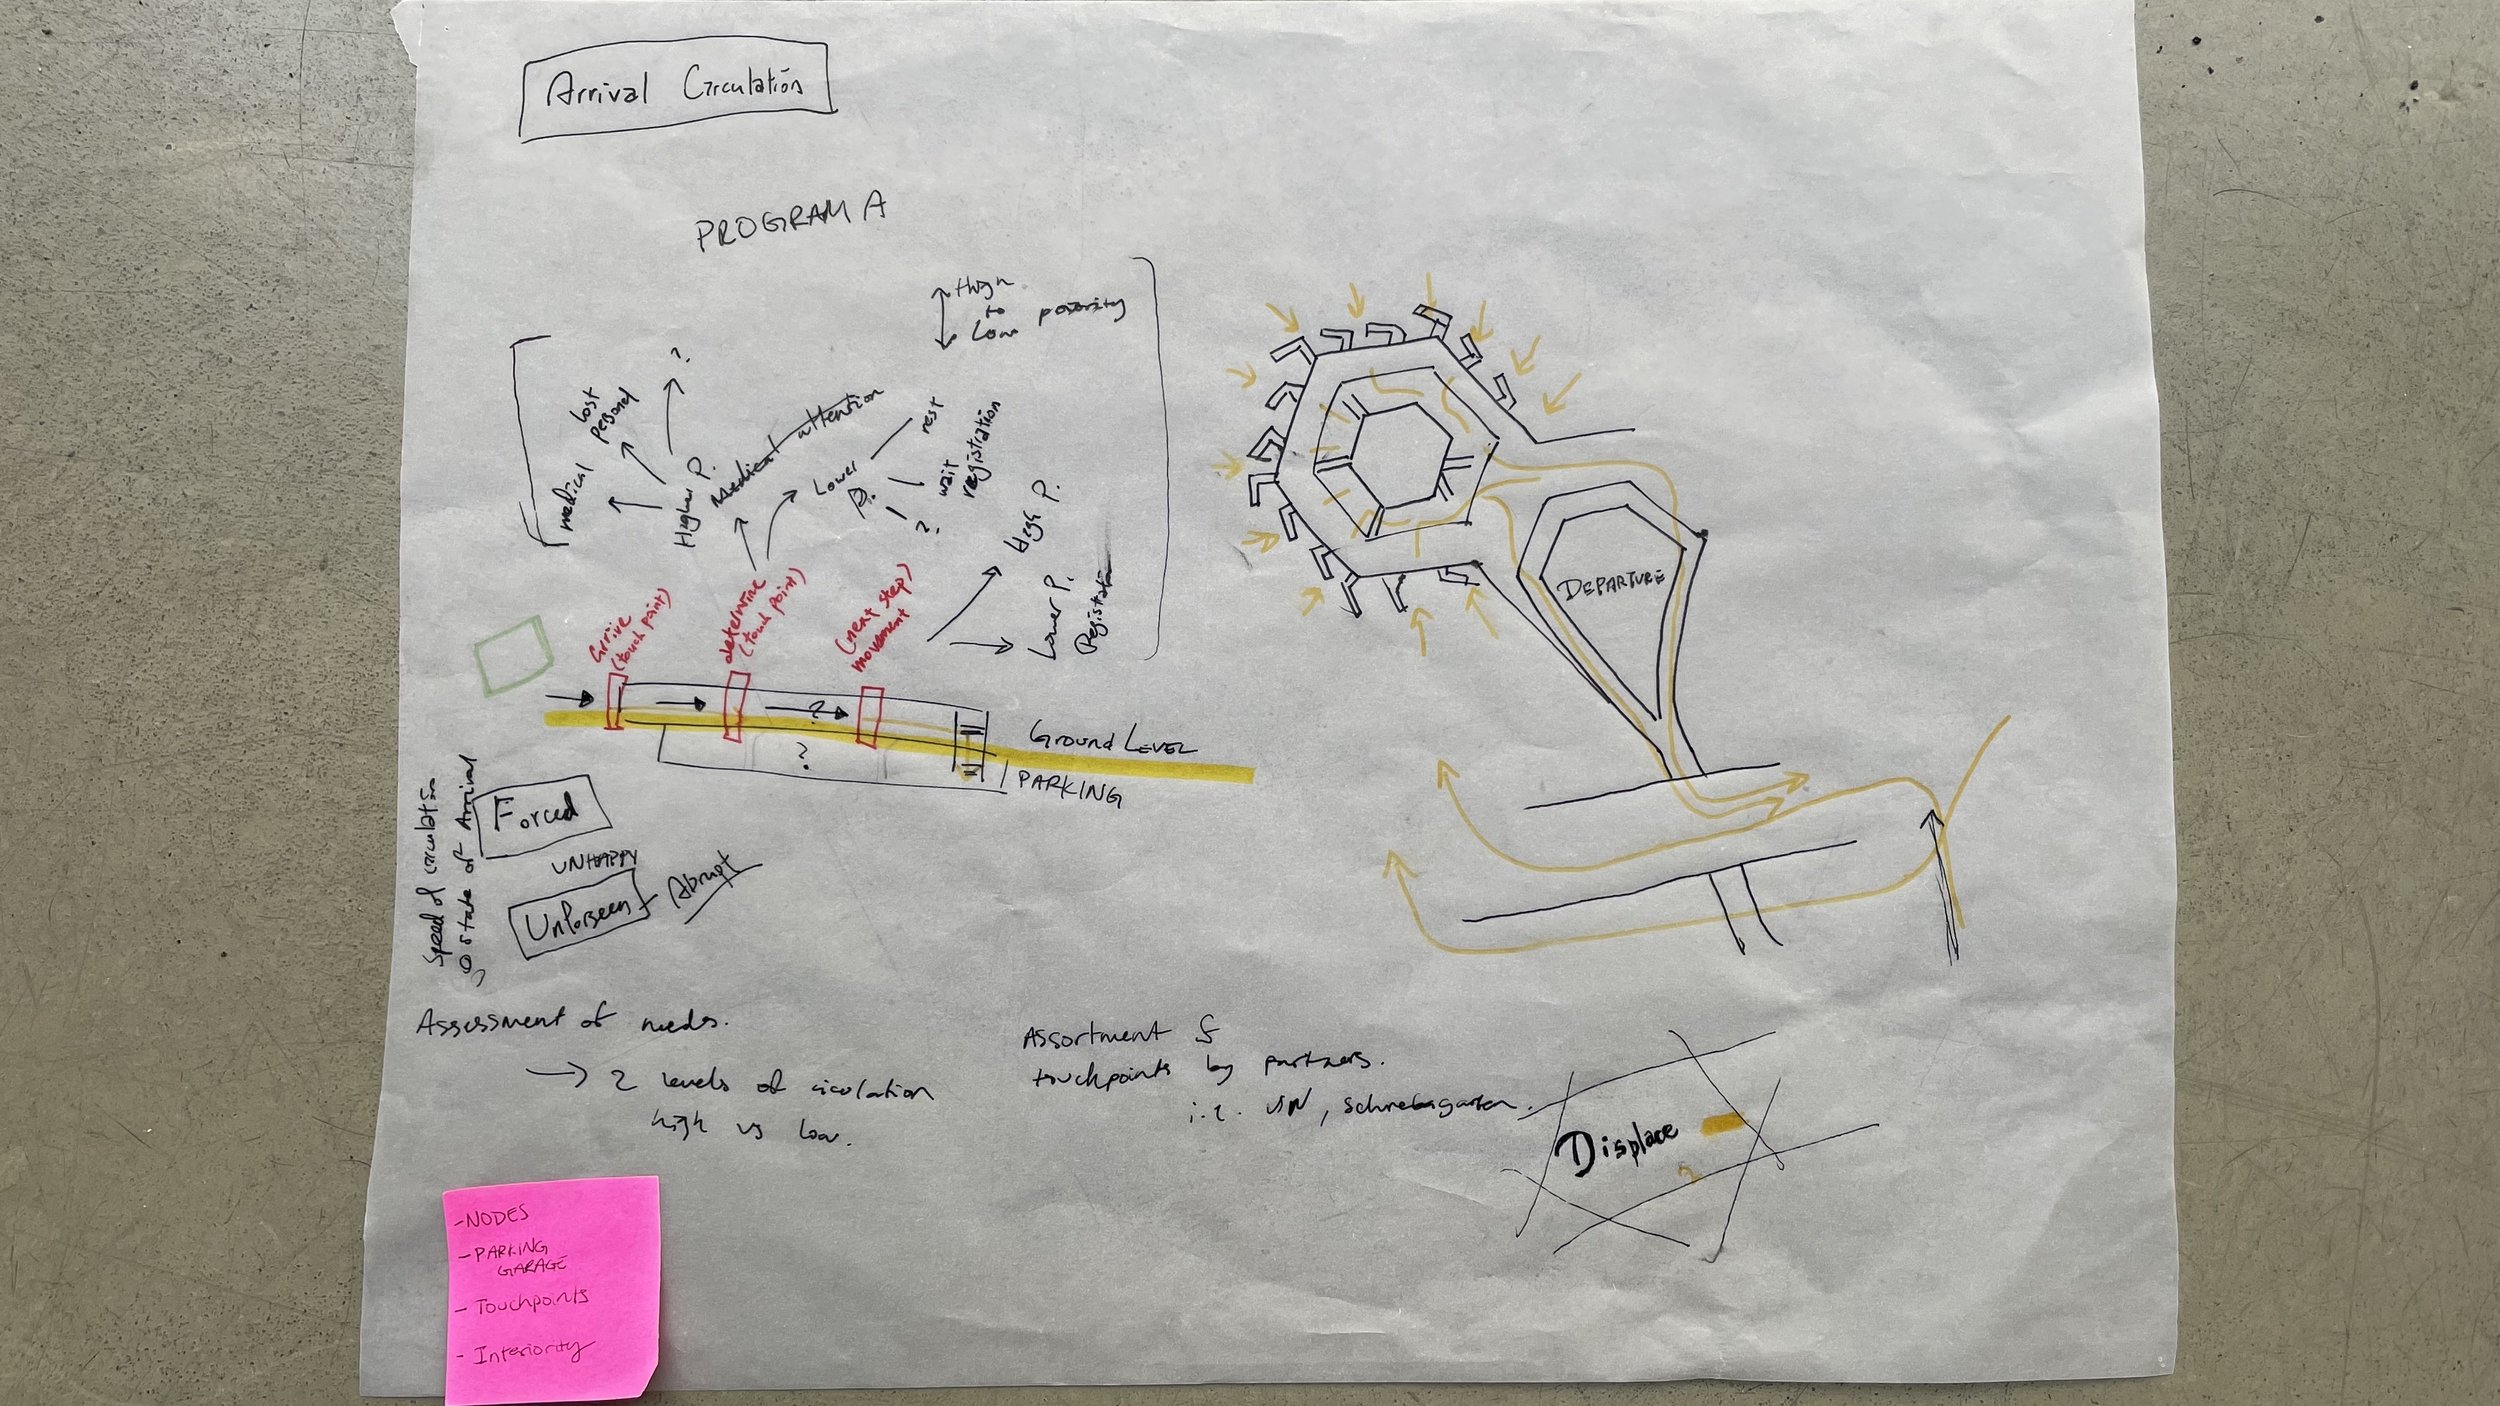 Arrival Circulation
PROGRAM A
High
to
Low
lost
medical
?
Higher P.
Medical attention
Lower
P.
rest
wait
registration
?
High P.
Lower P.
Registration
arrive
(touch point)
determine
(touch point)
(next step)
movement
?
?
Ground LEVEL
PARKING
Speed of circulation
State of Arrival
Forced
UNHAPPY
Abrupt
DEPARTURE
Assessment of needs.
→ 2 levels of
high vs low.
Assortment of
touchpoints by partners.
UN,
Displace
?
- NODES
- PARKING
GARAGE
- Touchpoints
- Interiority